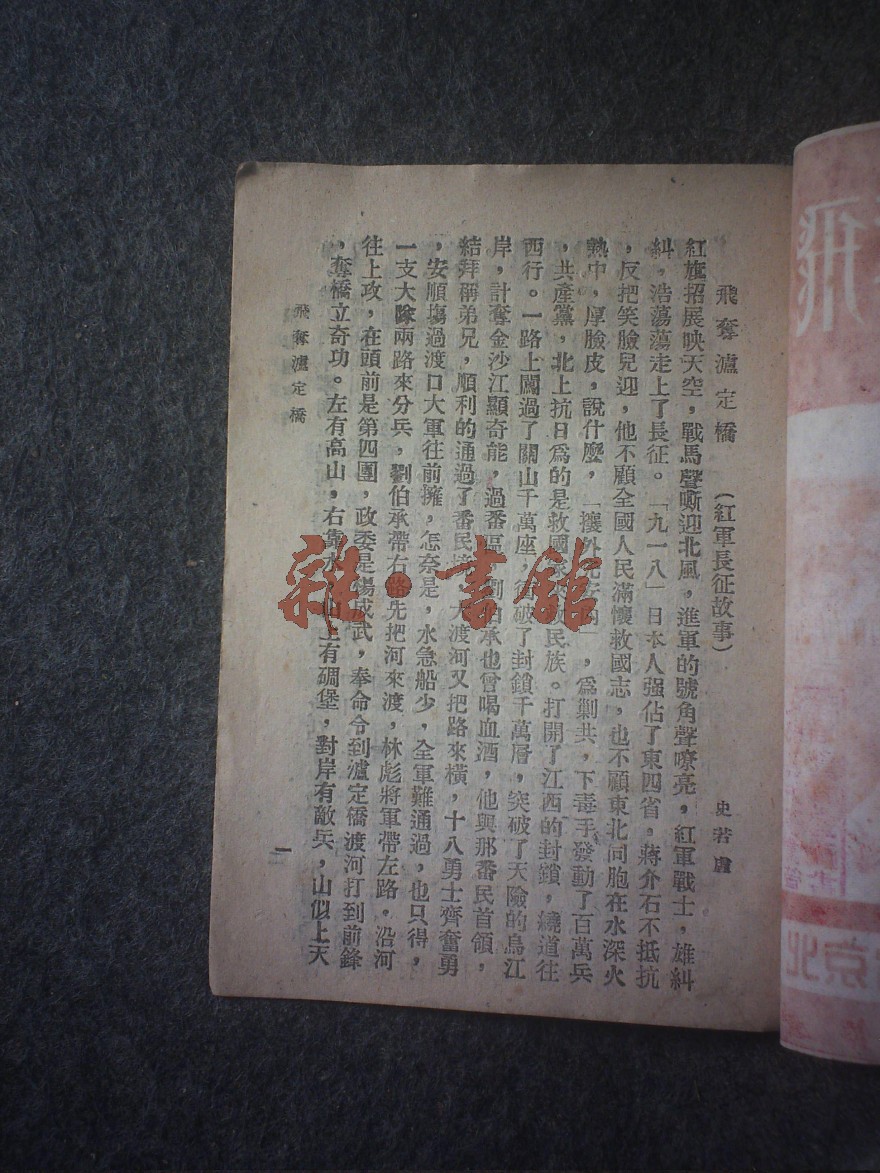 飛奪瀘定橋 (紅軍長征故事) 史若虛
紅旗招展映天空，戰馬聲嘶迎北風，進軍的號角聲嘹亮，紅軍戰士，雄糾
糾，浩蕩蕩走上了長征。「九一八」日本人強佔了東四省，蔣介石不抵抗
，反把笑臉兒迎，他不顧全國人民滿懷救國志，也不顧東北同胞在水深火
熱中，厚臉皮，說什麼，「攘外先安內」，為剿共，下毒手發動了百萬兵
，共產黨，北上抗日為的是救國家救民族。打開了江西的封鎖，繞道往
西行。一路上闖過了關山千萬座，衝破了封鎖千萬層，突破了天險的烏江
岸，計奪金沙江顯奇能，過番區，劉伯承也曾喝血酒，他與那番民首領，
結拜稱弟兄，順利的通過了番民境，大渡河又把路來橫，十八勇士齊奮勇
，安順塲過渡口大軍往前擁，怎奈是，水急船少，全軍難通過，也只得，
一支大隊兩路來分兵，劉伯承帶右路先把河來渡，林彪將軍帶左路，沿河
往上攻，在頭前是第四團，政委是楊成武，奉命令到瀘定橋渡河打到前鋒
，奪橋立奇功。左有高山，右靠水，山上有碉堡，對岸有敵兵，山似上天
飛奪瀘定橋
一
雜·書館
飛
京北